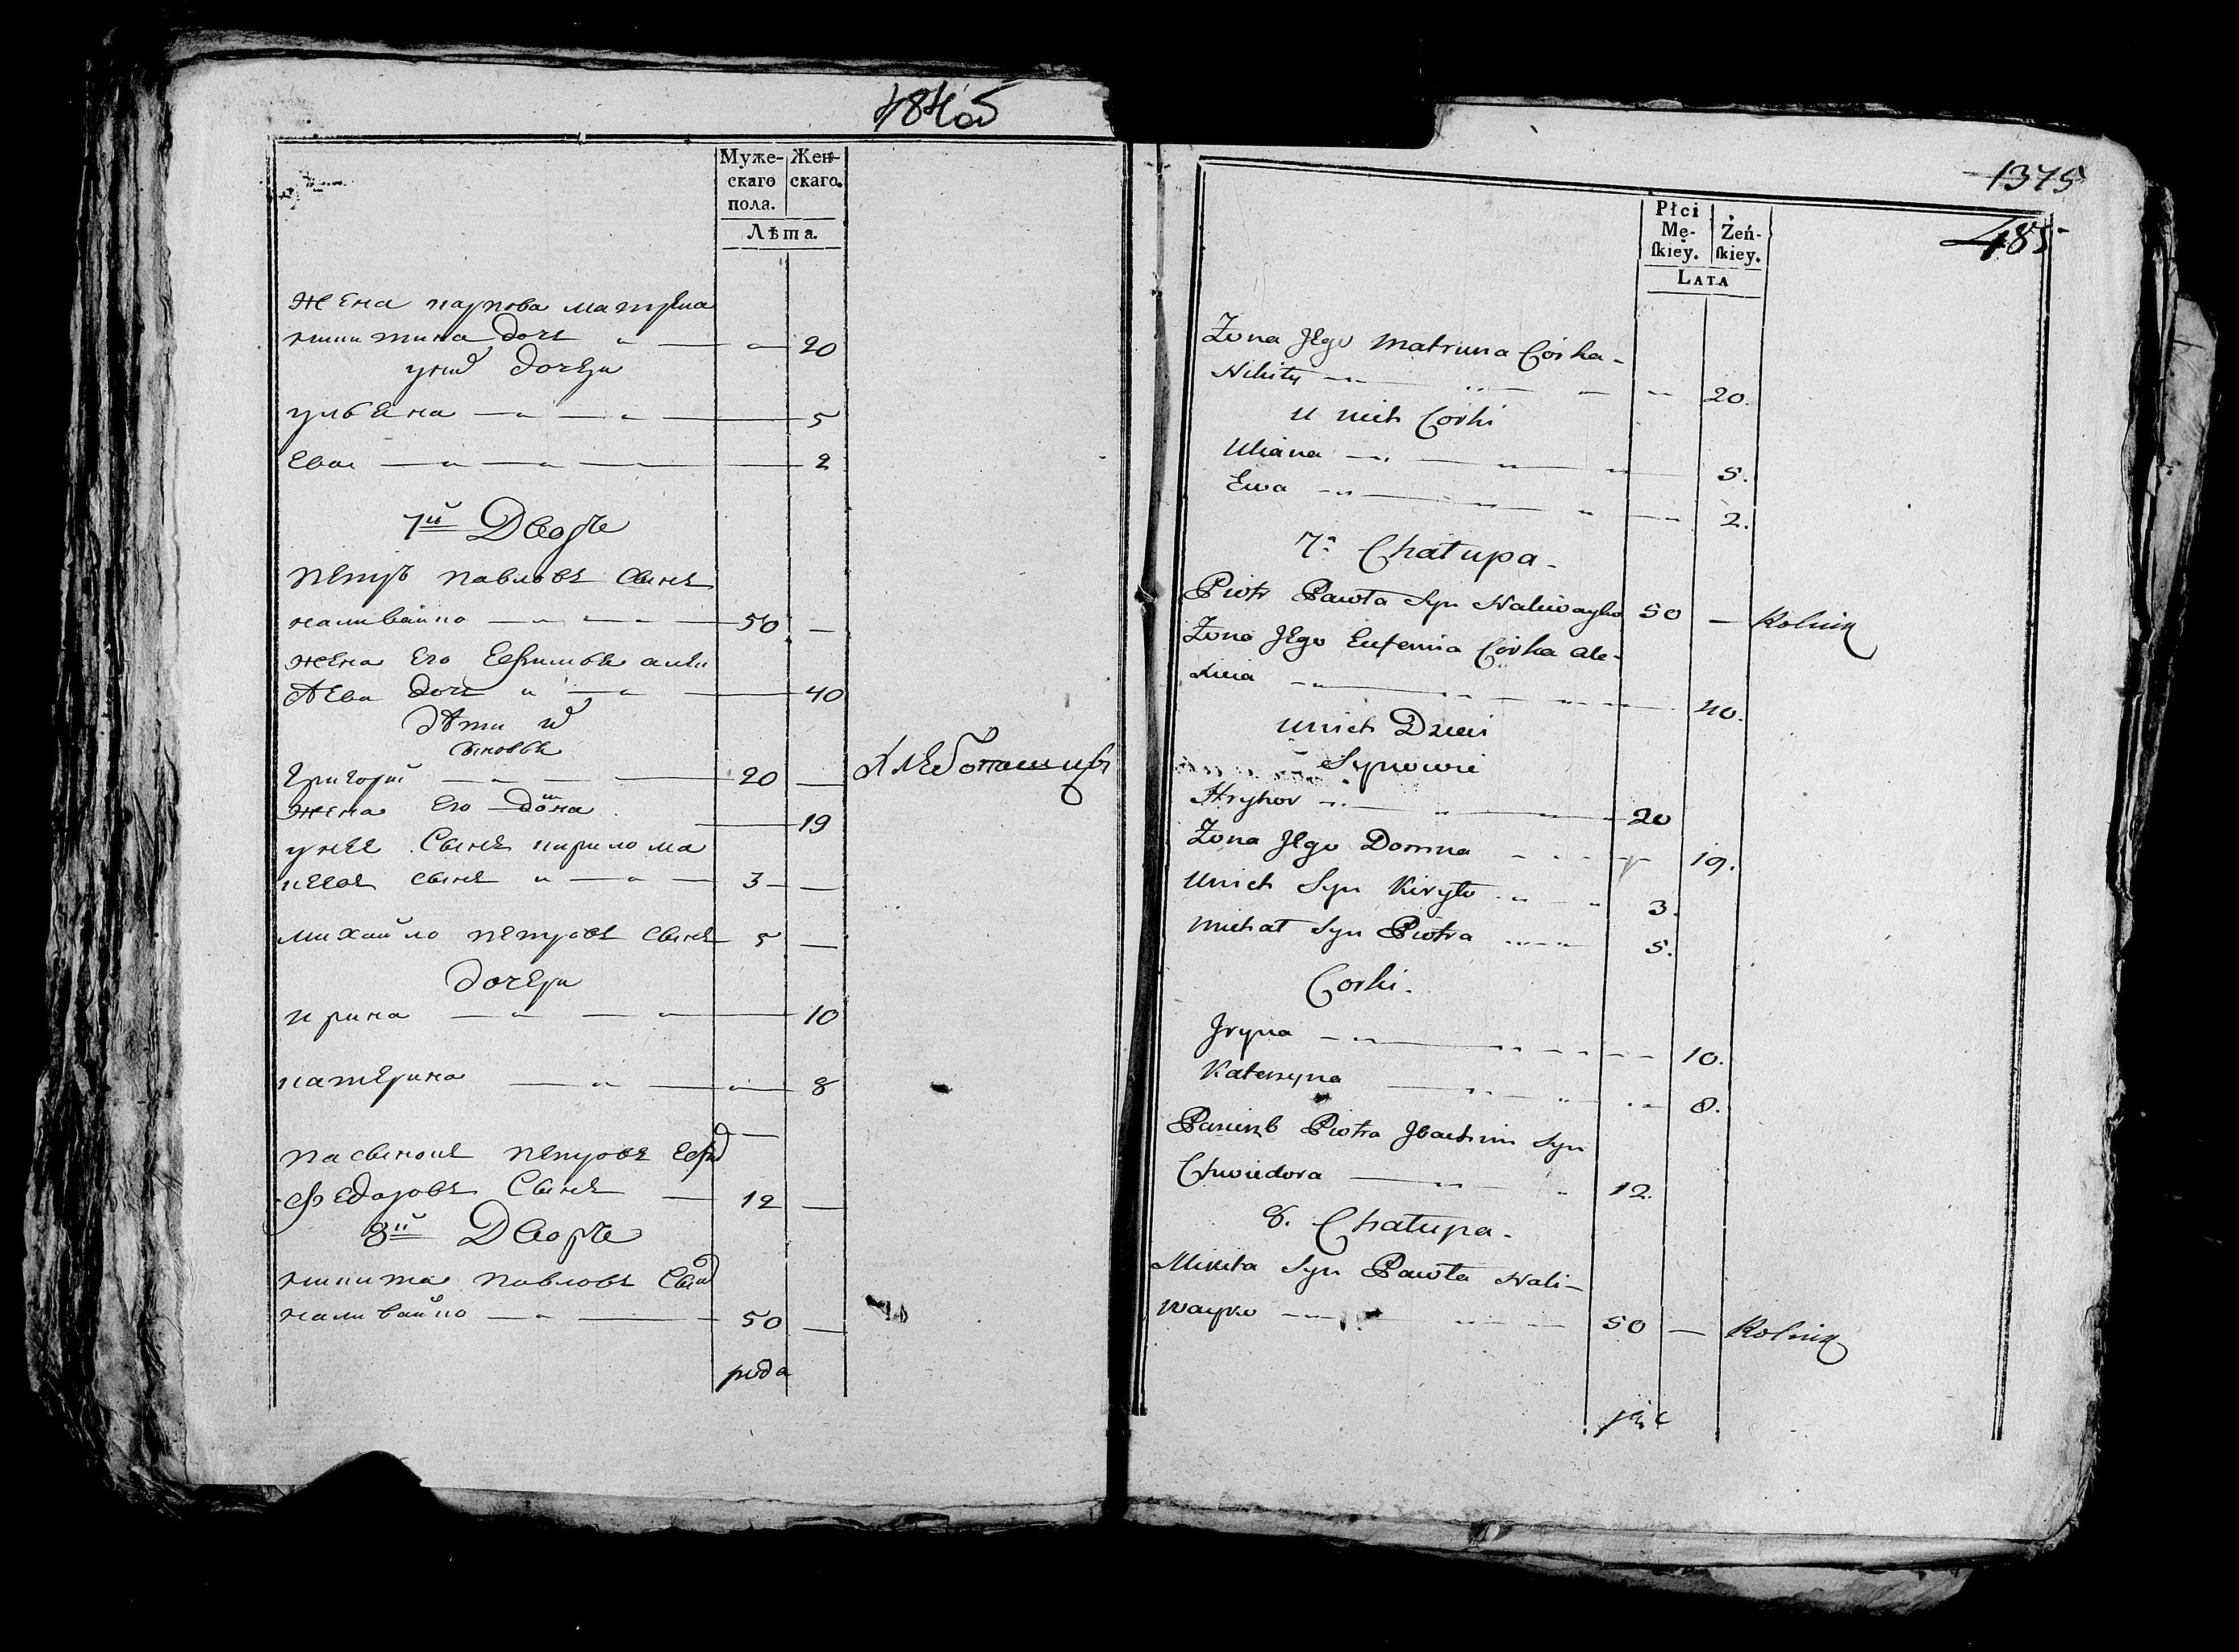 Муже-
скаго
пола.
Жен-
скаго.
Лѣта.
Жена карпова матрена
никитина дочь 20
у них дочери
ульяна 5
Ева 2
7й Дворъ
Петръ павловъ Сынъ
наливайко 50 —
жена Его Ефимья алек
сѣева дочь 40
дѣти их
Сыновья
Григорий 20 — Хлебопашецъ
жена Его домна 19
у нее Сынъ кирило
сынъ 3 —
михайло петровъ Сынъ 5 —
дочери
ирина 10
катерина 8
пасынокъ петровъ
федоровъ Сынъ 12 —
8й Дворъ
никита павловъ Сын
наливайко 50 —
1375
485
Płci
Mę-
ſkiey.
Żeń-
ſkiey.
LATA
Żona Jego Matruna Córka
Nikity 20.
u nich Corki
Uliana 5.
Ewa 2.
7a Chałupa
Piotr Pawła Syn Naliwayko 50 — Rolnik
Żona Jego Eufemia Córka Ale-
xieia 40.
u nich Dzieci
Synowie
Hryhor 20
Żona Jego Domna 19.
u nich Syn Kiryło 3.
Michał Syn Piotra 5.
Corki.
Jryna 10.
Katerzyna 8.
Pasierzb Piotra Joachim Syn
Chwiedora 12.
8. Chałupa
Mikita Syn Pawła Nali-
wayko 50 — Rolnik